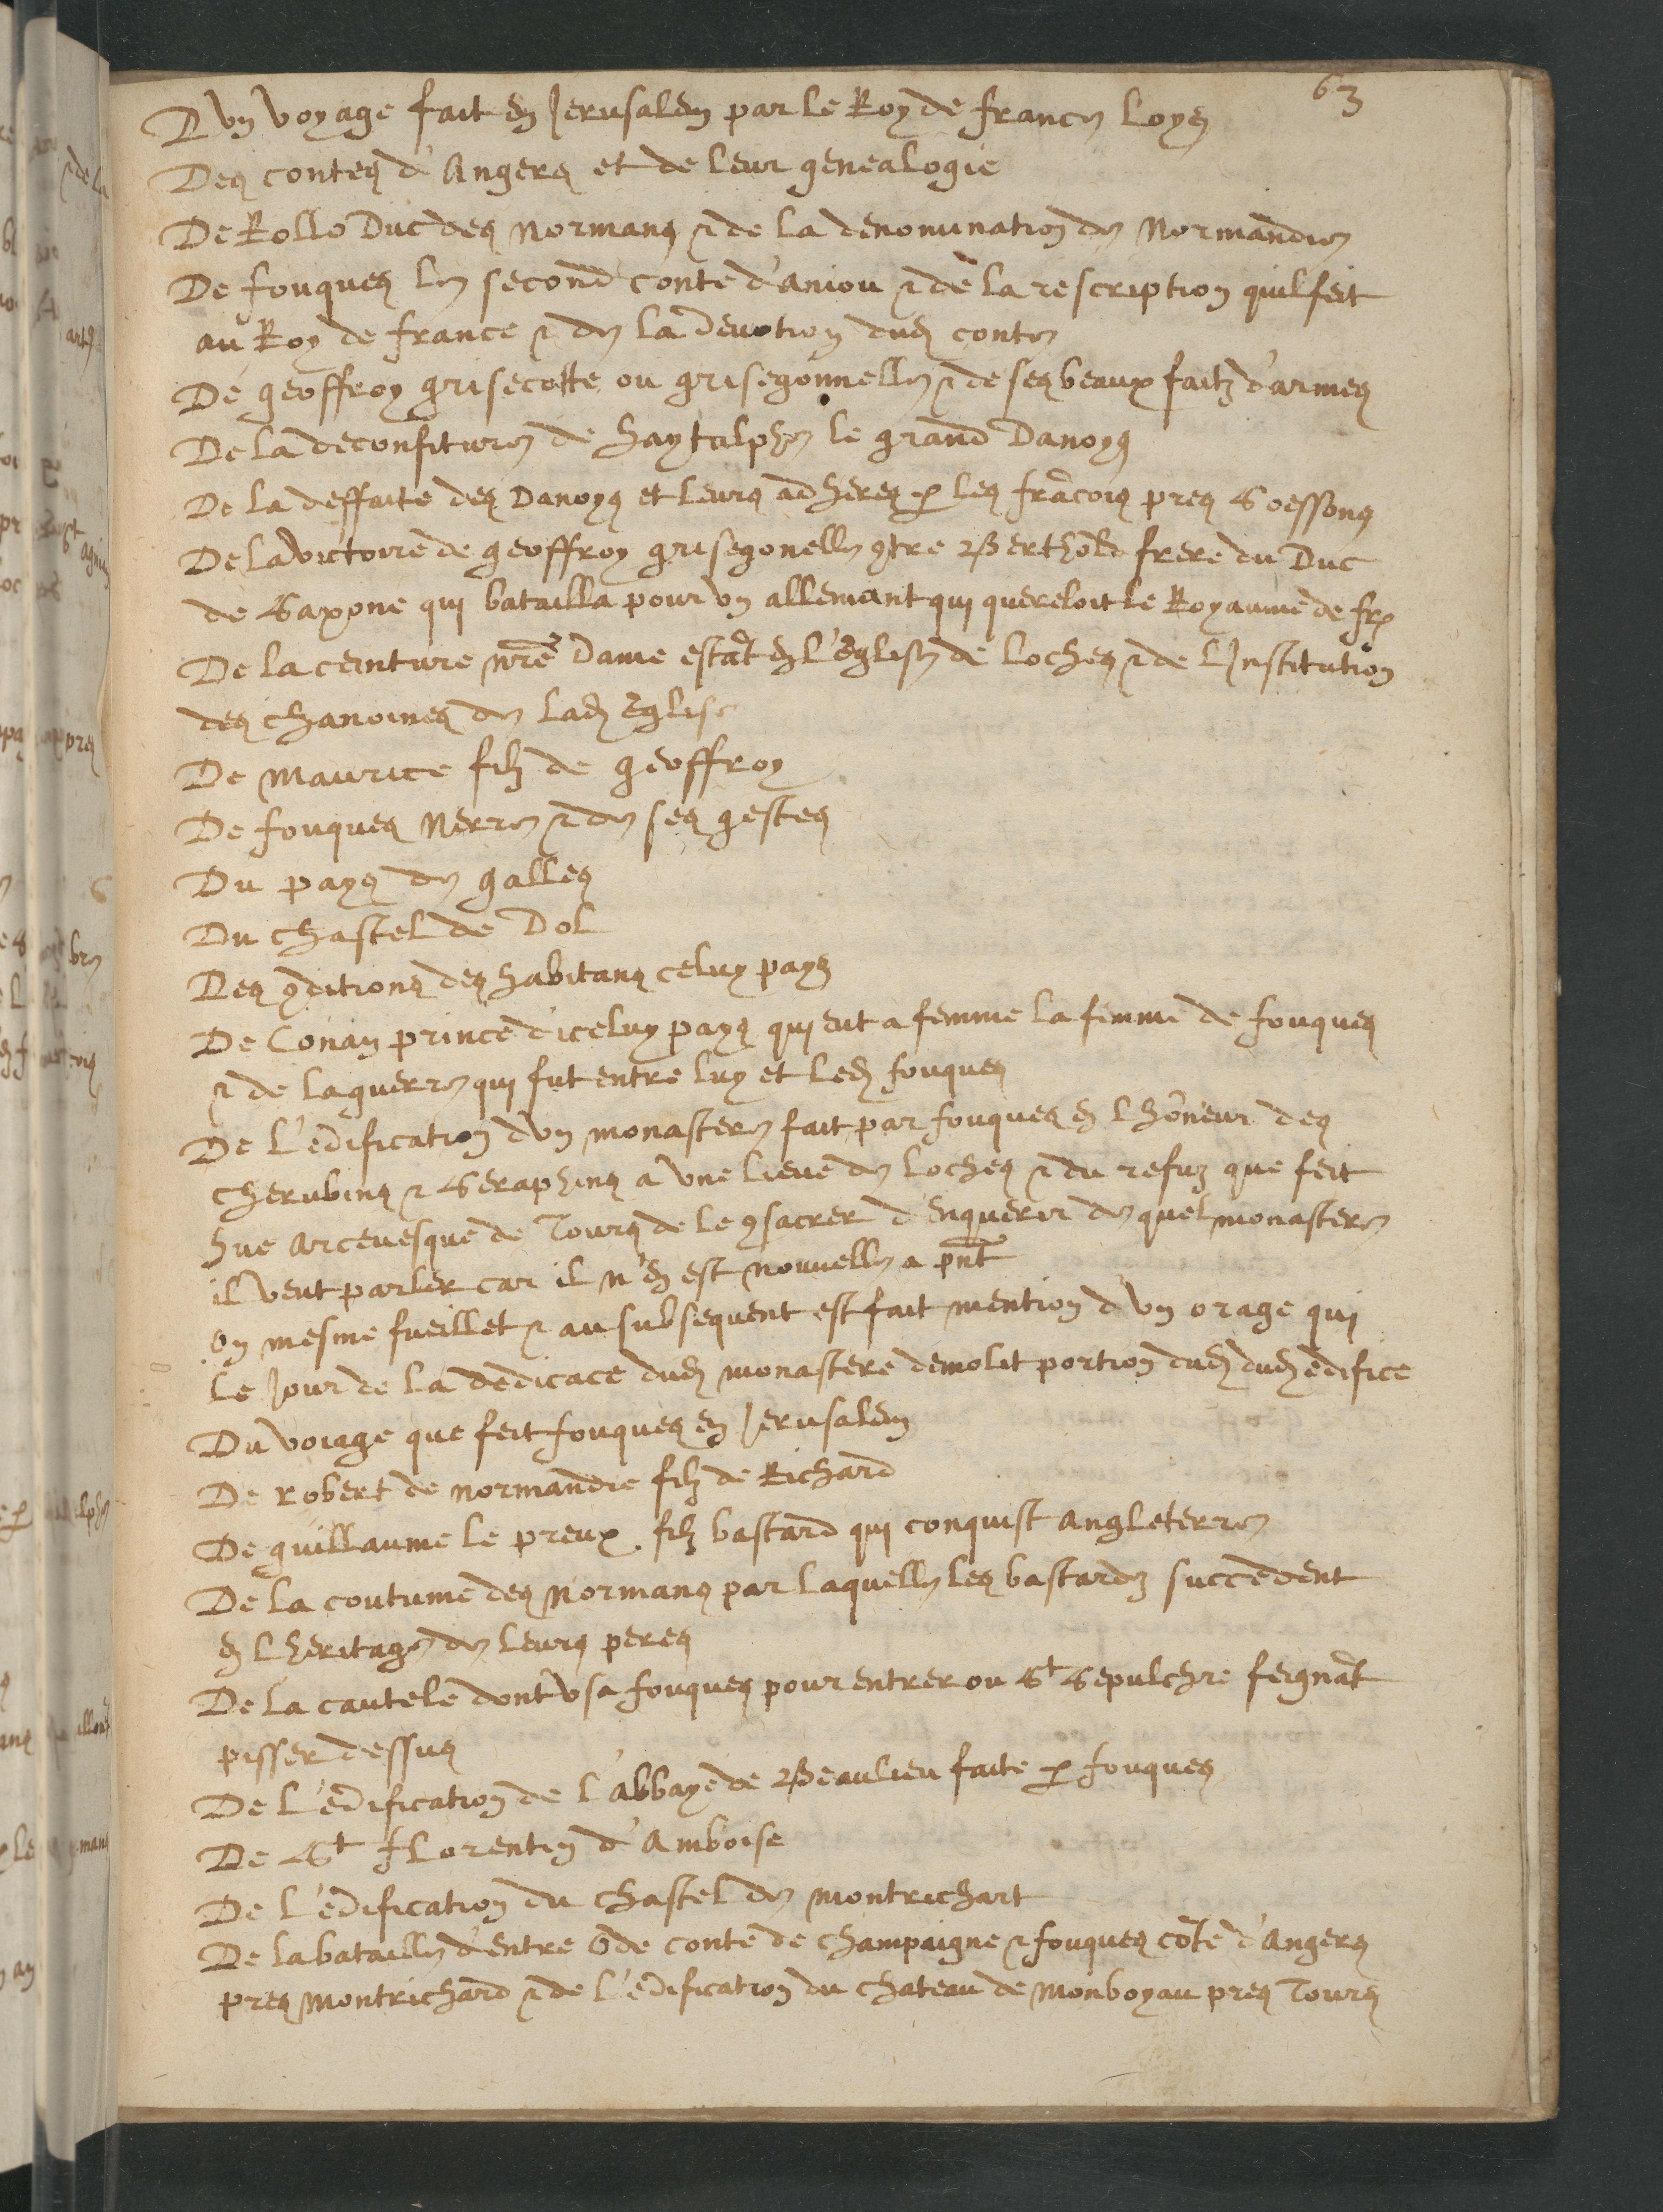 63
D'vn voyage fait en Jerusalem par le Roy de france Loys
Des contes d'Angers et de leur genealogie
De Rollo Duc des normans & de la denomination de Normandie
De fouques le second conte d'aniou & de la rescription quil feit
au Roy de france & de la deuotion dud conte
De geoffroy grisecotte ou grisegonnelle & de ses beaux faitz d'armes
De la deconfiture de haytulphe le grand Danoys
De la deffaite des Danoys et leurs adheres p les frãcois pres Soessons
De la victoire de geoffroy grisegonelle 9tre Berthold frere du Duc
de Saxone qui batailla pour vn allemant qui quereloit le Royaume de fr
De la ceinture nr̃e Dame estãt en l'Eglise de loches & de l'Institution
des chanoines de lad Eglise
De maurice filz de geoffroy
De fouques Nerre & de ses gestes
Du pays de galles
Du chastel de Dol
Des 9ditions des habitans celuy pays
De Conan prince d'iceluy pays qui eut a femme la femme de fouques
& de la guerre qui fut entre luy et led fouques
De l'edification d'vn monastere fait par fouques en l'hõneur des
cherubins & Seraphins a vne lieue de loches & du refuz que feit
hue arceuesque de Tours de le 9sacrer d'enquerir de quel monastere
il veut parler car il n'en est nouuelle a pñt
On mesme fueillet & au subsequent est fait mention d'vn orage qui
le jour de la dedicace dud monastere demolit portion dud dud edifice
Du voiage que feit fouques en Jerusalem
De robert de normandie filz de Richard
De guillaume le preux filz bastard qui conquist angleterre
De la coutume des Normans par laquelle les bastardz succedent
en l'heritage de leurs peres
De la cautele dont vsa fouques pour entrer ou St Sepulchre feignãt
pisser dessus
De l'edification de l'abbaye de Beaulieu faite p fouques
De St florentin d'Amboise
De l'edification du chastel de montrichart
De la bataille d'entre Ode conte de champaigne & fouques cõte d'Angers
pres montrichard & de l'edification du chateau de monboyau pres Tours